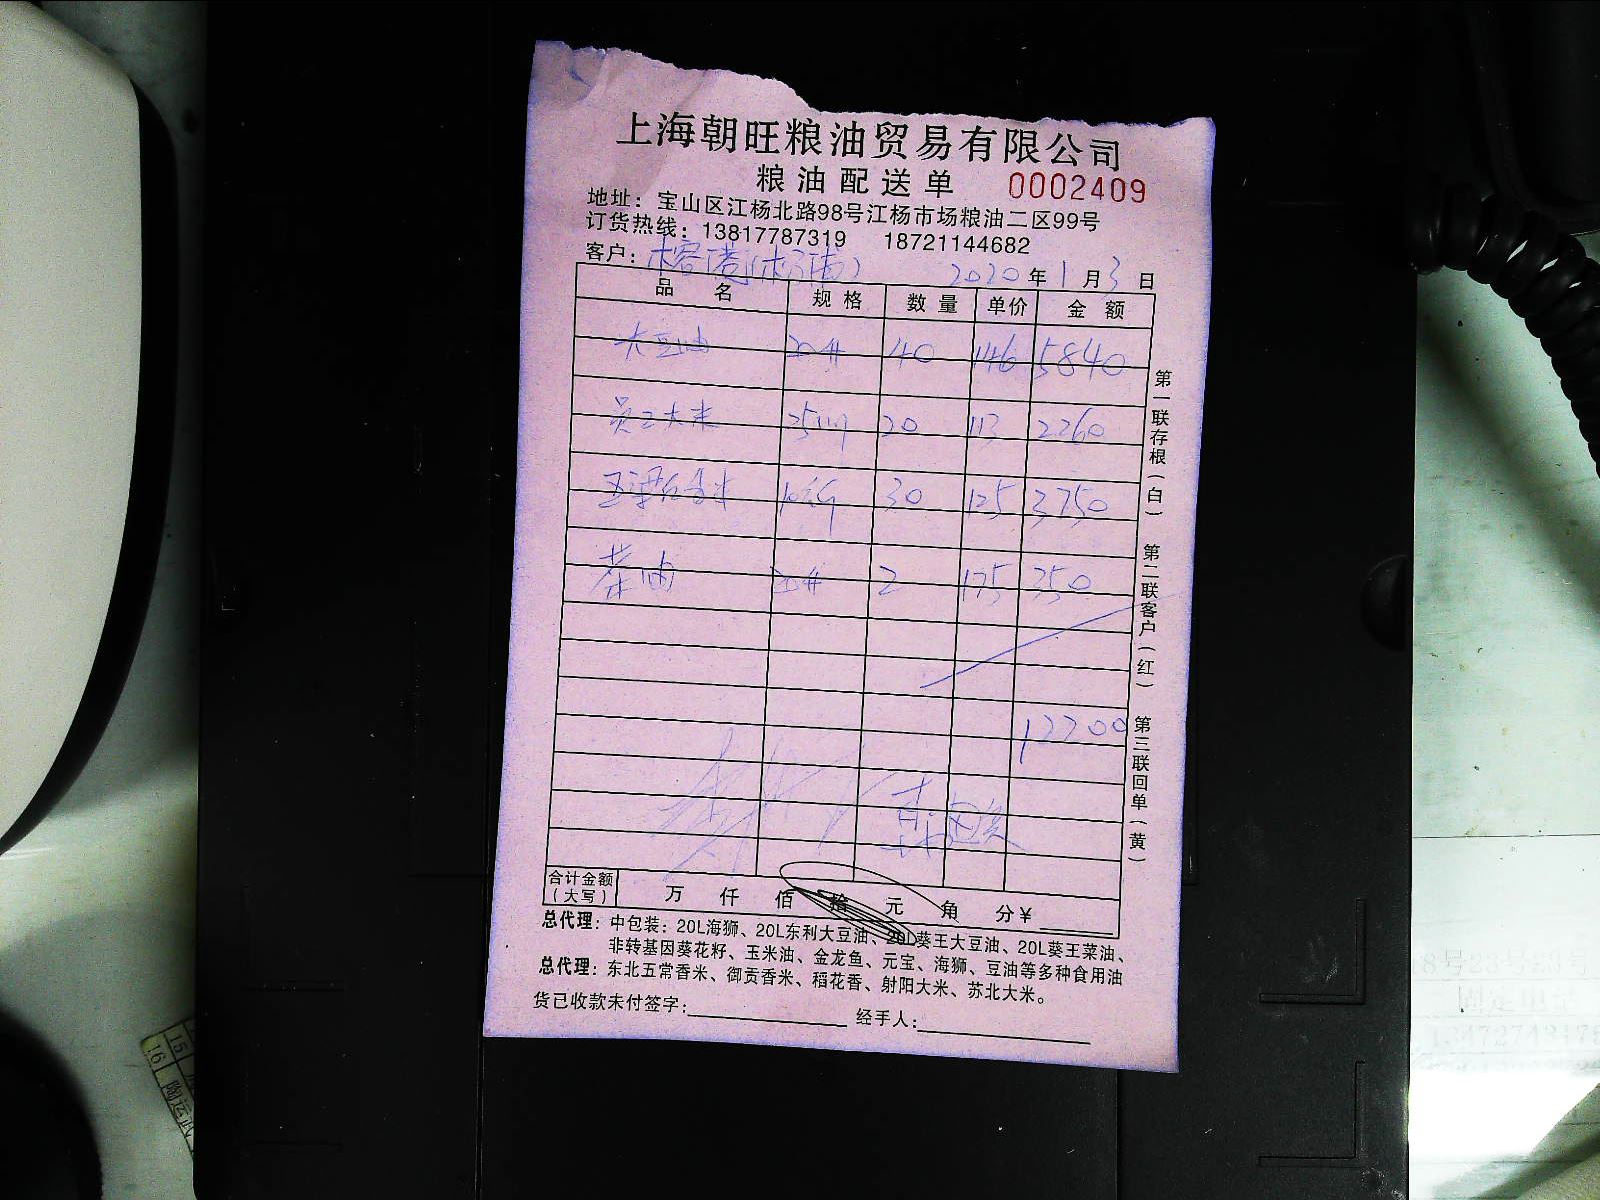 上海朝旺粮油贸易有限公司
粮油配送单 0002409
地址：宝山区江杨北路98号江杨市场粮油二区99号
订货热线：13817787319 18721144682
客户： 2020年1月3日
品名 规格 数量 单价 金额
大豆油 20# 40 146 5840
员工大米 20 113 2260
30 125 3750
菜油 20# 2 175 350
12200
合计金额（大写） 万 仟 佰 拾 元 角 分￥
总代理：中包装：20L海狮、20L东利大豆油、20L葵王大豆油、20L葵王菜油、
非转基因葵花籽、玉米油、金龙鱼、元宝、海狮、豆油等多种食用油
总代理：东北五常香米、御贡香米、稻花香、射阳大米、苏北大米。
货已收款未付签字： 经手人：
第一联存根（白）
第二联客户（红）
第三联回单（黄）
15
16 陶运武